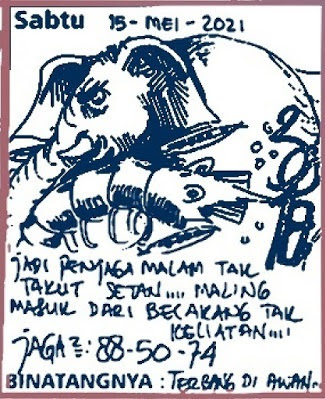 Sabtu 15-MEI-2021
JADI PENJAGA MALAM TAK
TAKUT SETAN.... MALING
MASUK DARI BELAKANG TAK
KELIATAN....
JAGA²: 88-50-74
BINATANGNYA : TERBANG DI AWAN..